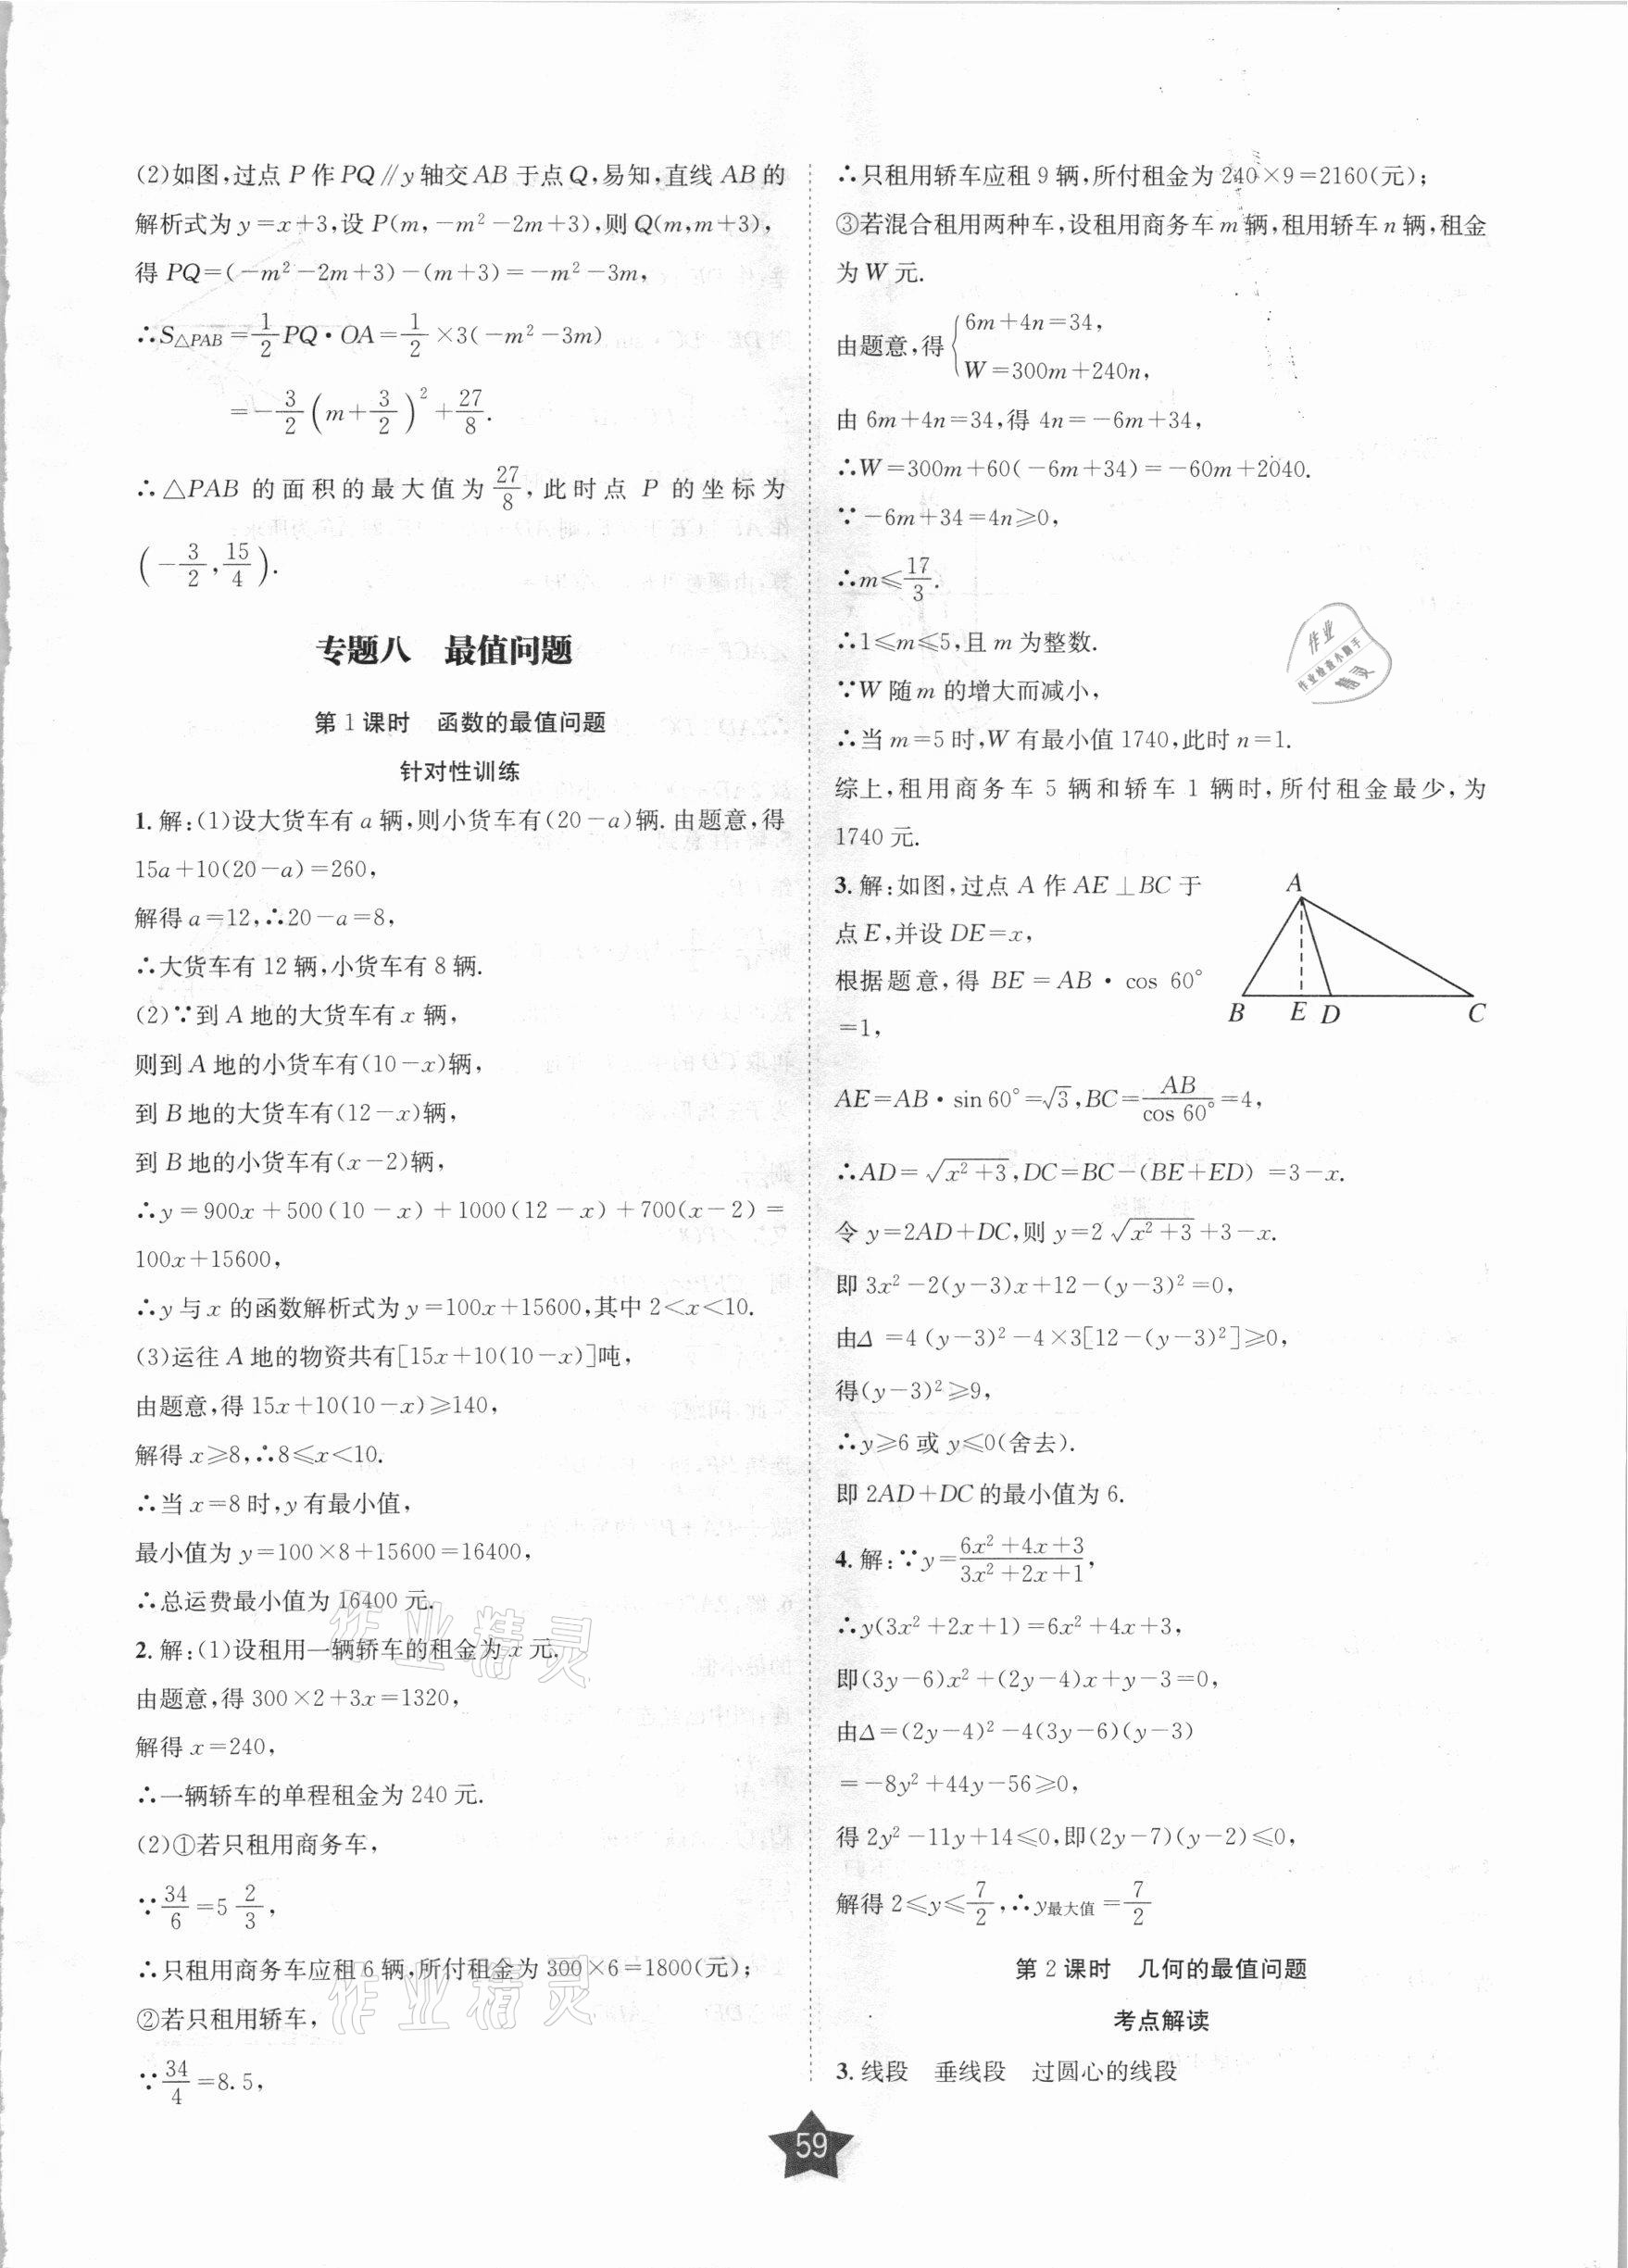 (2)如图,过点 P 作 PQ∥y 轴交 AB 于点 Q,易知,直线 AB 的
解析式为 y=x+3,设 P(m,-m²-2m+3),则 Q(m,m+3),
得 PQ=(-m²-2m+3)-(m+3)=-m²-3m,
∴S△PAB=1/2 PQ·OA=1/2×3(-m²-3m)
=-3/2(m+3/2)²+27/8.
∴△PAB 的面积的最大值为 27/8,此时点 P 的坐标为
(-3/2,15/4).
专题八 最值问题
第 1 课时 函数的最值问题
针对性训练
1.解:(1)设大货车有 a 辆,则小货车有(20-a)辆.由题意,得
15a+10(20-a)=260,
解得 a=12,∴20-a=8,
∴大货车有 12 辆,小货车有 8 辆.
(2)∵到 A 地的大货车有 x 辆,
则到 A 地的小货车有(10-x)辆,
到 B 地的大货车有(12-x)辆,
到 B 地的小货车有(x-2)辆,
∴y=900x+500(10-x)+1000(12-x)+700(x-2)=
100x+15600,
∴y 与 x 的函数解析式为 y=100x+15600,其中 2<x<10.
(3)运往 A 地的物资共有[15x+10(10-x)]吨,
由题意,得 15x+10(10-x)≥140,
解得 x≥8,∴8≤x<10.
∴当 x=8 时,y 有最小值,
最小值为 y=100×8+15600=16400,
∴总运费最小值为 16400 元.
2.解:(1)设租用一辆轿车的租金为 x 元.
由题意,得 300×2+3x=1320,
解得 x=240,
∴一辆轿车的单程租金为 240 元.
(2)①若只租用商务车,
∵34/6=5 2/3,
∴只租用商务车应租 6 辆,所付租金为 300×6=1800(元);
②若只租用轿车,
∵34/4=8.5,
∴只租用轿车应租 9 辆,所付租金为 240×9=2160(元);
③若混合租用两种车,设租用商务车 m 辆,租用轿车 n 辆,租金
为 W 元.
由题意,得{6m+4n=34,
W=300m+240n,
由 6m+4n=34,得 4n=-6m+34,
∴W=300m+60(-6m+34)=-60m+2040.
∵-6m+34=4n≥0,
∴m≤17/3.
∴1≤m≤5,且 m 为整数.
∵W 随 m 的增大而减小,
∴当 m=5 时,W 有最小值 1740,此时 n=1.
综上,租用商务车 5 辆和轿车 1 辆时,所付租金最少,为
1740 元.
3.解:如图,过点 A 作 AE⊥BC 于
点 E,并设 DE=x,
根据题意,得 BE=AB·cos 60°
=1,
A
B E D C
AE=AB·sin 60°=√3,BC=AB/cos 60°=4,
∴AD=√(x²+3),DC=BC-(BE+ED)=3-x.
令 y=2AD+DC,则 y=2√(x²+3)+3-x.
即 3x²-2(y-3)x+12-(y-3)²=0,
由Δ=4(y-3)²-4×3[12-(y-3)²]≥0,
得(y-3)²≥9,
∴y≥6 或 y≤0(舍去).
即 2AD+DC 的最小值为 6.
4.解:∵y=(6x²+4x+3)/(3x²+2x+1),
∴y(3x²+2x+1)=6x²+4x+3,
即(3y-6)x²+(2y-4)x+y-3=0,
由Δ=(2y-4)²-4(3y-6)(y-3)
=-8y²+44y-56≥0,
得 2y²-11y+14≤0,即(2y-7)(y-2)≤0,
解得 2≤y≤7/2,∴y最大值=7/2
第 2 课时 几何的最值问题
考点解读
3.线段 垂线段 过圆心的线段
59
作业精灵
作业精灵
作业
作业检查小助手
精灵